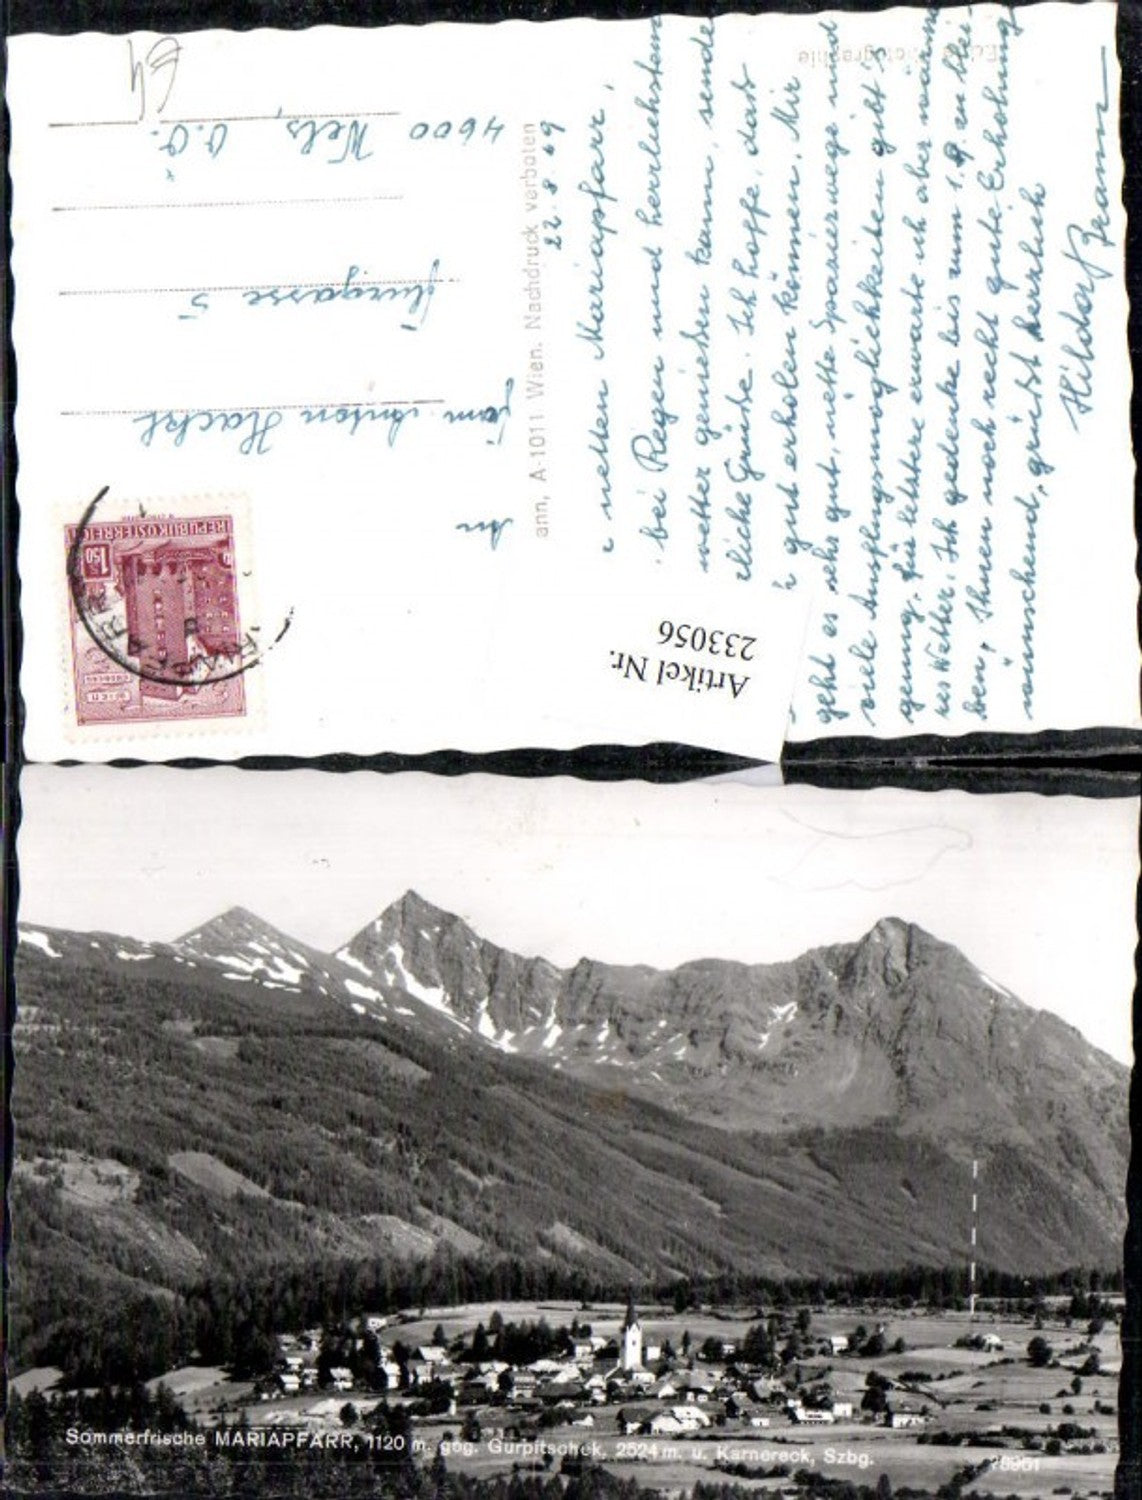 22.8.69
netten Mariapfarr,
bei Regen und herrlichsten
wetter genießen kann, sende
liche Grüße. Ich hoffe, dass
gut erholen können. Mir
geht es sehr gut, nette Spazierwege und
viele Ausflugsmöglichkeiten gibt's
genug, für letztere erwarte ich aber wärme-
res Wetter. Ich gedenke bis zum 1.9. zu blei-
ben, Ihnen noch recht gute Erholung
wünschend, grüßt herzlich
Hilda Bramm
Artikel Nr.
233056
ann, A-1011 Wien. Nachdruck verboten
Echte Photographie
REPUBLIK ÖSTERREICH
1.50
WIEN
An
Fam. Anton Hackl
Flurgasse 5
4600 Wels, O.Ö.
64
Sommerfrische MARIAPFARR, 1120 m, geg. Gurpitscheck, 2524 m. u. Karnereck, Szbg.
78961